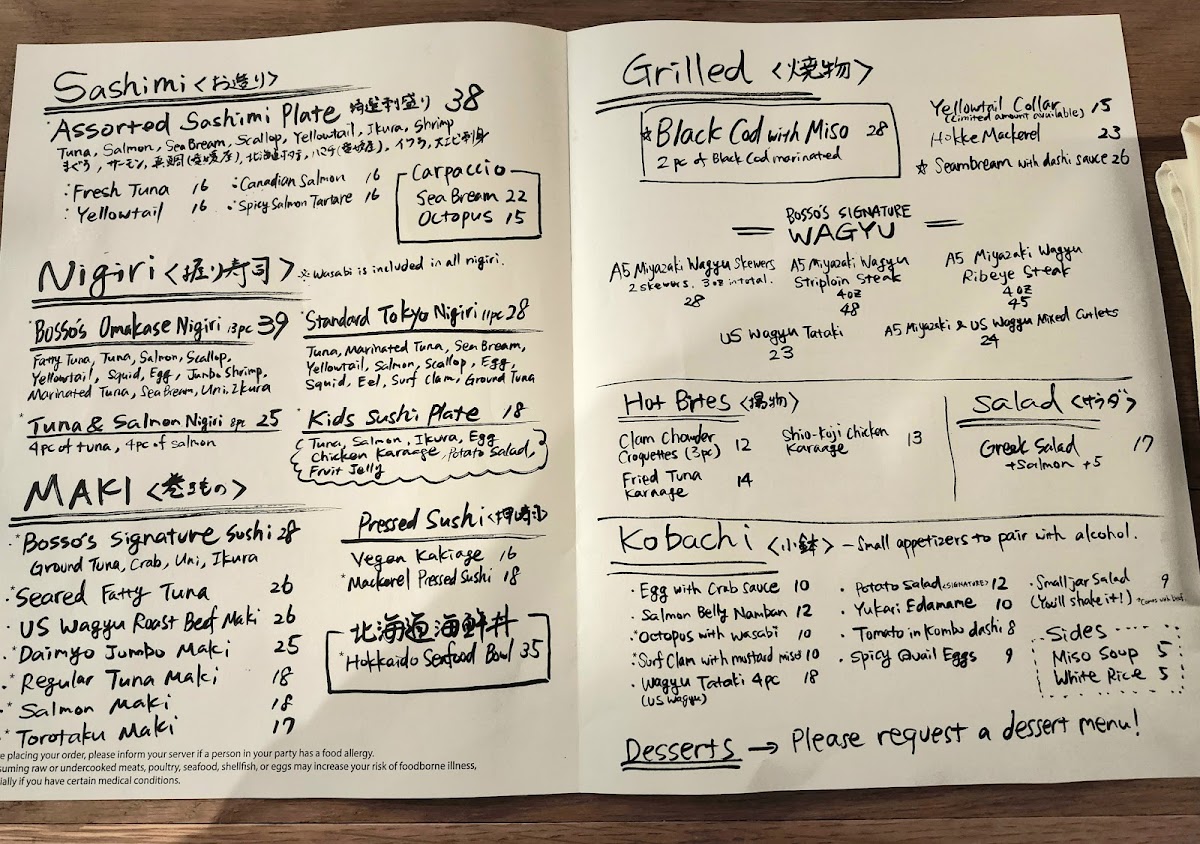 Sashimi <お造り>
Assorted Sashimi Plate 特選刺盛り 38
Tuna, Salmon, Sea Bream, Scallop, Yellowtail, Ikura, Shrimp
Fresh Tuna 16
Yellowtail 16
Canadian Salmon 16
Spicy Salmon Tartare 16
Carpaccio
Sea Bream 22
Octopus 15
Nigiri <握り寿司> ※ Wasabi is included in all nigiri.
Bosso's Omakase Nigiri 13pc 39
Fatty Tuna, Tuna, Salmon, Scallop,
Yellowtail, Squid, Egg, Jumbo Shrimp,
Marinated Tuna, Sea Bream, Uni, Ikura
Standard Tokyo Nigiri 11pc 28
Tuna, Marinated Tuna, Sea Bream,
Yellowtail, Salmon, Scallop, Egg,
Squid, Eel, Surf Clam, Ground Tuna
*Tuna & Salmon Nigiri 8pc 25
4pc of tuna, 4pc of salmon
*Kids Sushi Plate 18
(Tuna, Salmon, Ikura, Egg
Chicken Karaage, Potato Salad,
Fruit Jelly
MAKI <巻きもの>
*Bosso's Signature Sushi 28
Ground Tuna, Crab, Uni, Ikura
*Seared Fatty Tuna 26
US Wagyu Roast Beef Maki 26
*Daimyo Jumbo Maki 25
*Regular Tuna Maki 18
*Salmon Maki 18
*Torotaku Maki 17
Pressed Sushi <押寿司>
Vegan Kakiage 16
*Mackerel Pressed Sushi 18
北海道海鮮丼
*Hokkaido Seafood Bowl 35
e placing your order, please inform your server if a person in your party has a food allergy.
suming raw or undercooked meats, poultry, seafood, shellfish, or eggs may increase your risk of foodborne illness,
ially if you have certain medical conditions.
Grilled <焼物>
☆Black Cod with Miso 28
2 pc of Black Cod marinated
Yellowtail Collar 15
(Limited amount available)
Hokke Mackerel 23
☆ Seambream with dashi sauce 26
BOSSO'S SIGNATURE
WAGYU
A5 Miyazaki Wagyu Skewers
2 skewers. 3oz in total.
28
A5 Miyazaki Wagyu
Striploin Steak
4oz
48
A5 Miyazaki Wagyu
Ribeye Steak
4oz
45
US Wagyu Tataki
23
A5 Miyazaki & US Wagyu Mixed Cutlets
24
Hot Bites <揚物>
Clam Chowder
Croquettes (3pc) 12
Fried Tuna
Karaage 14
Shio-Koji Chicken
Karaage 13
Salad <サラダ>
Greek Salad 17
+Salmon +5
Kobachi <小鉢> - Small appetizers to pair with alcohol.
・Egg with Crab Sauce 10
・Salmon Belly Namban 12
*Octopus with Wasabi 10
*Surf Clam with mustard miso 10
・Wagyu Tataki 4pc 18
(US Wagyu)
・Potato Salad <SIGNATURE> 12
・Yukari Edamame 10
・Tomato in Kombu dashi 8
・Spicy Quail Eggs 9
・Small jar Salad 9
(You'll shake it!)
Sides
Miso Soup 5
White Rice 5
Desserts → Please request a dessert menu!